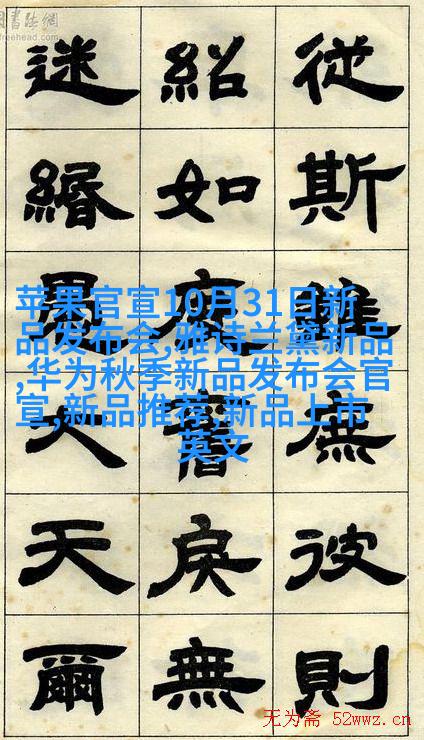 書法網
freehead.com
從斯雖彼則
紹如夜戾無
迷緡天爾
苹果官宣10月31日新
品发布会,雅诗兰黛新品
,华为秋季新品发布会官
宣,新品推荐,新品上市
英文
无为斋 52wwz.cn